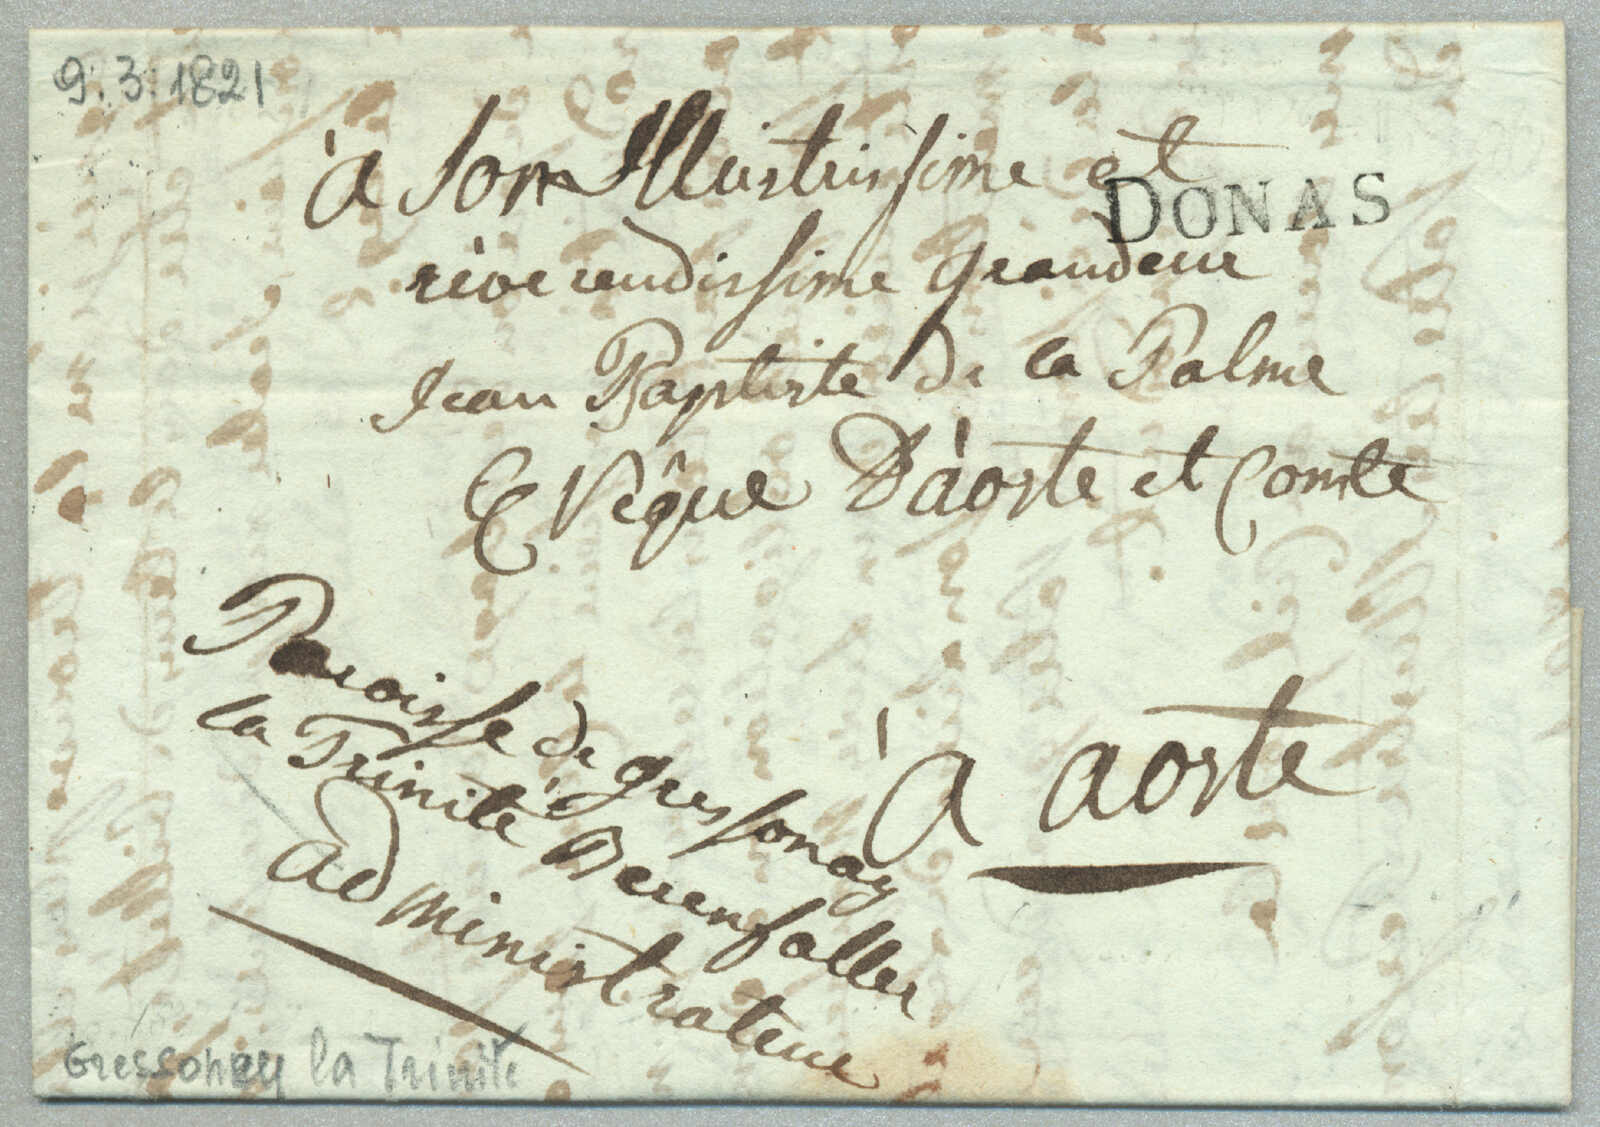 9. 3. 1821
à Son Illustrissime et
DONAS
rèverendissime grandeur
Jean Baptiste de la Palme
Evêque D'àoste et Comte
à aoste
Paroisse de gressonay
la Trinité Berenfaller
administrateur
Gressoney la Trinité